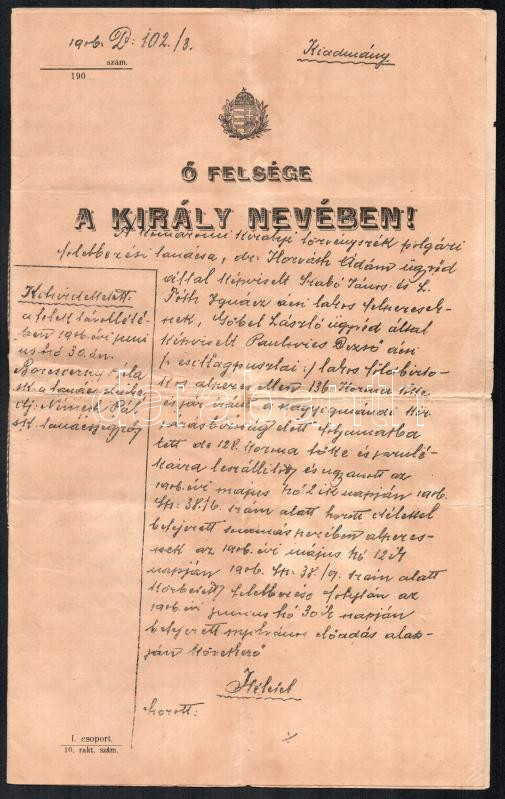 1906. D: 102./3.
szám.
190
Kiadmány
Ő FELSÉGE
A KIRÁLY NEVÉBEN!
A komáromi királyi törvényszék polgári
felebbezési tanácsa, dr. Horváth Ádám ügyvéd
által képviselt Szabó János és L.
Tóth Ignácz ácsi lakos felperesek-
nek, Göbel László ügyvéd által
képviselt Paulovics Dezső ácsi
lakos földbirto-
kos alperes ellen 136 korona tőke
és jár. iránt a nagyigmándi kir.
járásbiróság előtt folyamatba
tett de 128 korona tőke és járulé-
kaira leszállított és ugyanott az
1906. évi május hó 2ik napján 1906.
Sp. 38/6. szám alatt hozott itélettel
befejezett sommás perében alperes-
nek az 1906. évi május hó 12ik
napján 1906. Sp. 38/9. szám alatt
felebbezése folytán az
1906. évi junius hó 30ik napján
befejezett nyilvános előadás alap-
ján következő
Itéletet
hozott:
Kihirdettetett
a felek távollété-
ben 1906. évi juni-
us hó 30.án.
Béla
s.k. a tanács elnöke
Németh Pál
s.k. tanácsjegyző
I. csoport.
10. rakt. szám.
darabanth